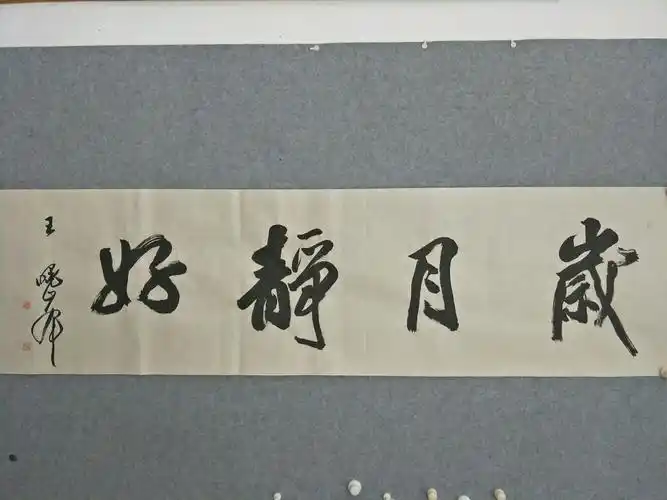 歲月靜好
王